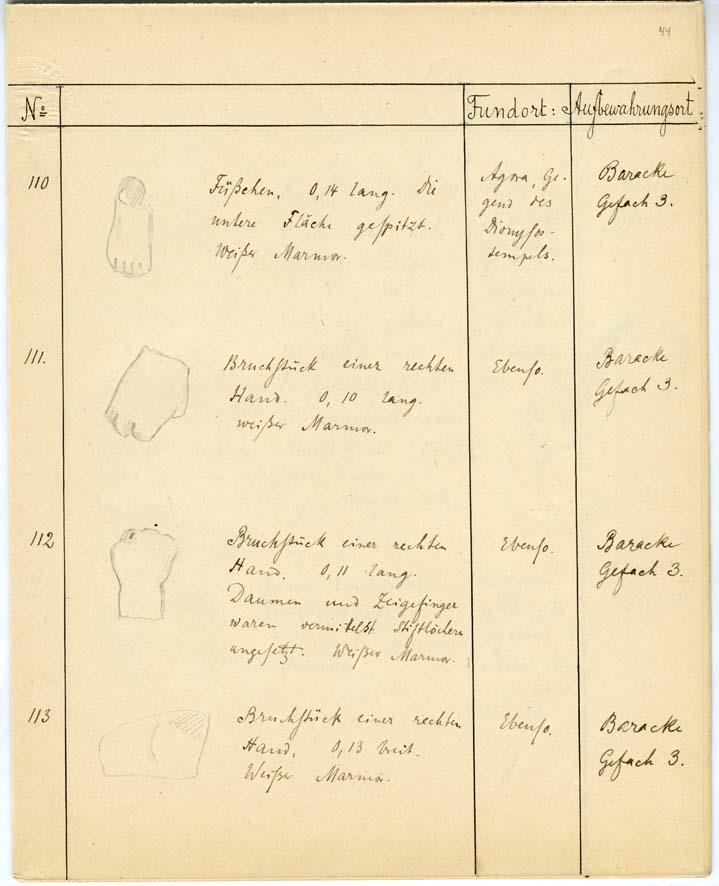 44
No Fundort: Aufbewahrungsort
110 Füßchen, 0,14 lang. Die
untere Fläche gespitzt.
Weißer Marmor.
Agora, Ge-
gend des
Dionysos-
tempels.
Baracke
Gefach 3.
111. Bruchstück einer rechten
Hand. 0,10 lang.
weißer Marmor.
Ebenso.
Baracke
Gefach 3.
112 Bruchstück einer rechten
Hand. 0,11 lang.
Daumen und Zeigefinger
waren vermittelst Stiftlöchern
angesetzt. Weißer Marmor.
Ebenso.
Baracke
Gefach 3.
113 Bruchstück einer rechten
Hand, 0,13 breit.
Weißer Marmor.
Ebenso.
Baracke
Gefach 3.